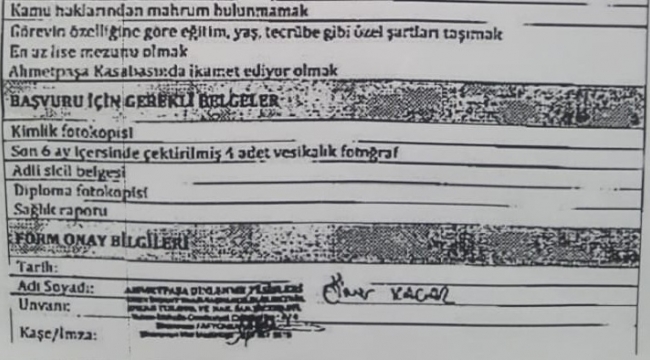 Kamu haklarından mahrum bulunmamak
Görevin özelliğine göre eğitim, yaş, tecrübe gibi özel şartları taşımak
En az lise mezunu olmak
Ahmetpaşa Kasabasında ikamet ediyor olmak
BAŞVURU İÇİN GEREKLİ BELGELER
Kimlik fotokopisi
Son 6 ay içersinde çektirilmiş 4 adet vesikalık fotoğraf
Adli sicil belgesi
Diploma fotokopisi
Sağlık raporu
FORM ONAY BİLGİLERİ
Tarih:
Adı Soyadı:
Unvanı:
Kaşe/İmza: